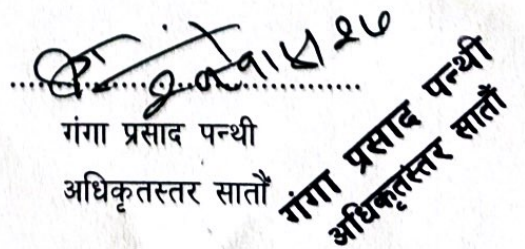 गंगा प्रसाद पन्थी
अधिकृतस्तर सातौं
गंगा प्रसाद पन्थी
अधिकृतस्तर सातौं